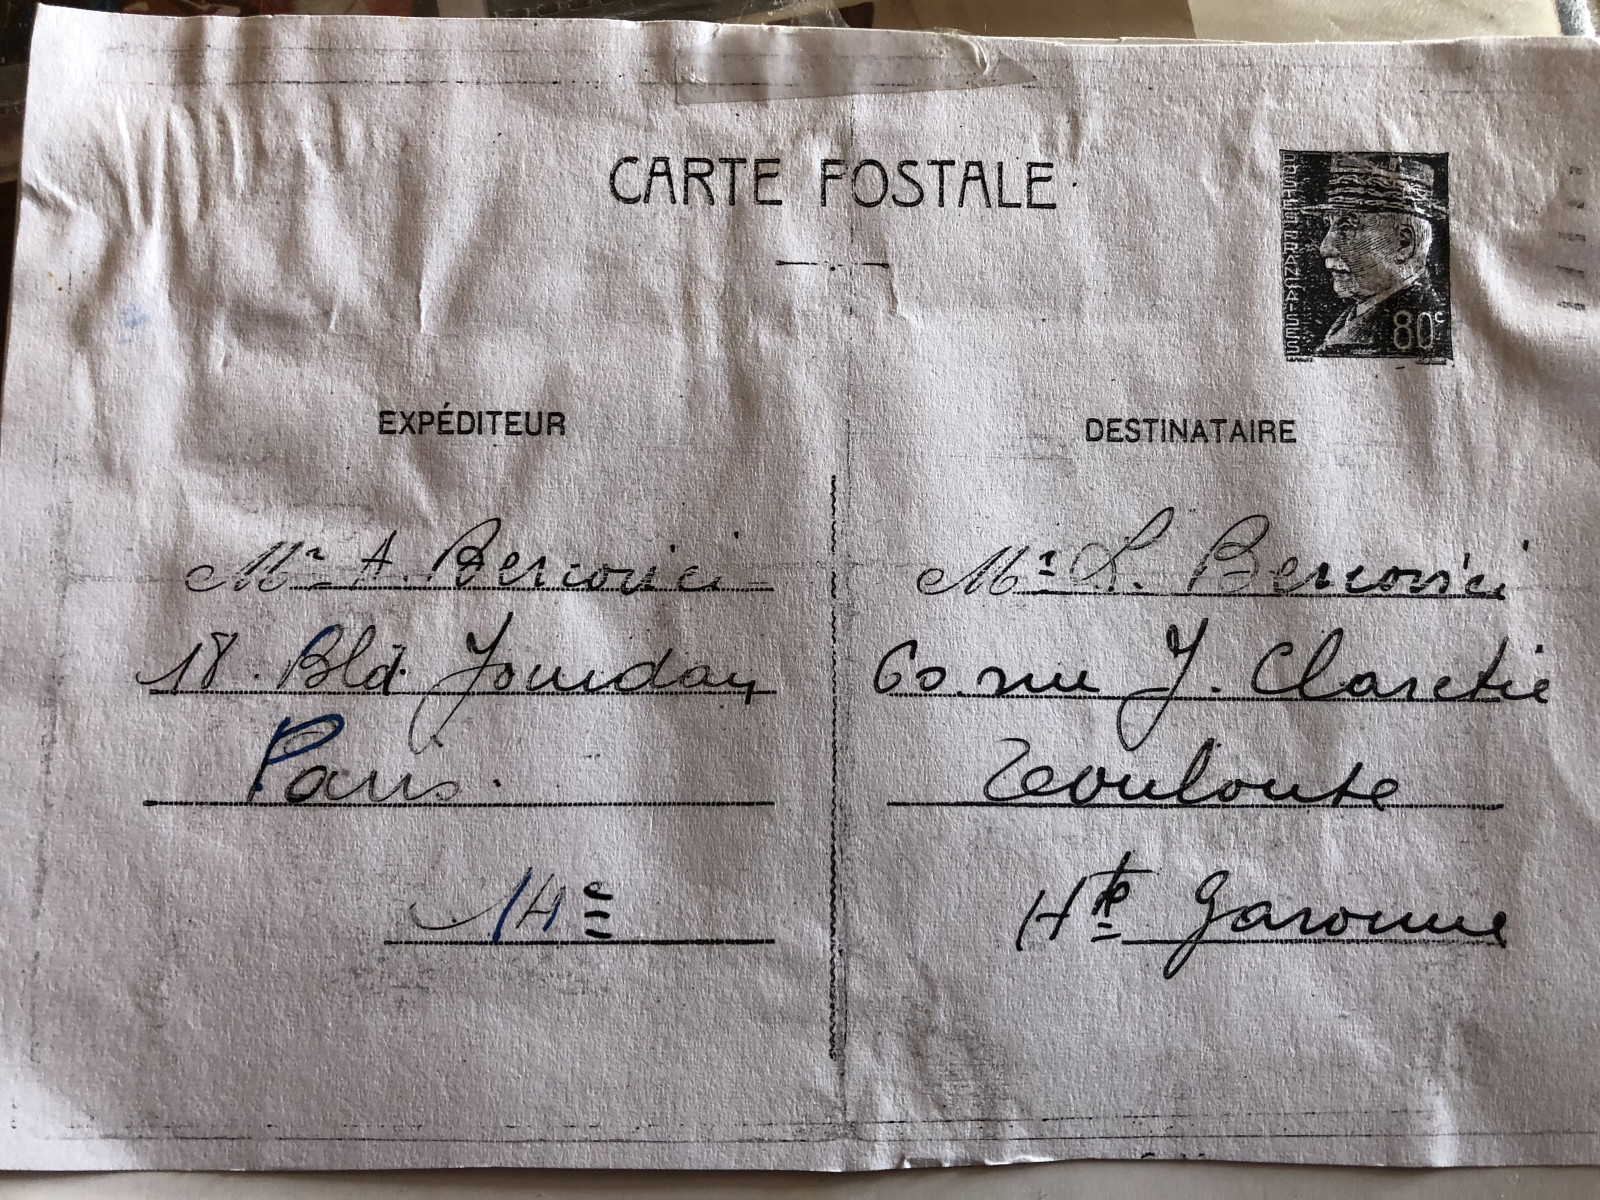 CARTE POSTALE
POSTES FRANÇAISES
80c
EXPÉDITEUR
Mr A. Bercovici
18. Bld. Jourdan
Paris.
14e
DESTINATAIRE
Mr L. Bercovici
60 rue J. Claretie
Toulouse
Hte Garonne